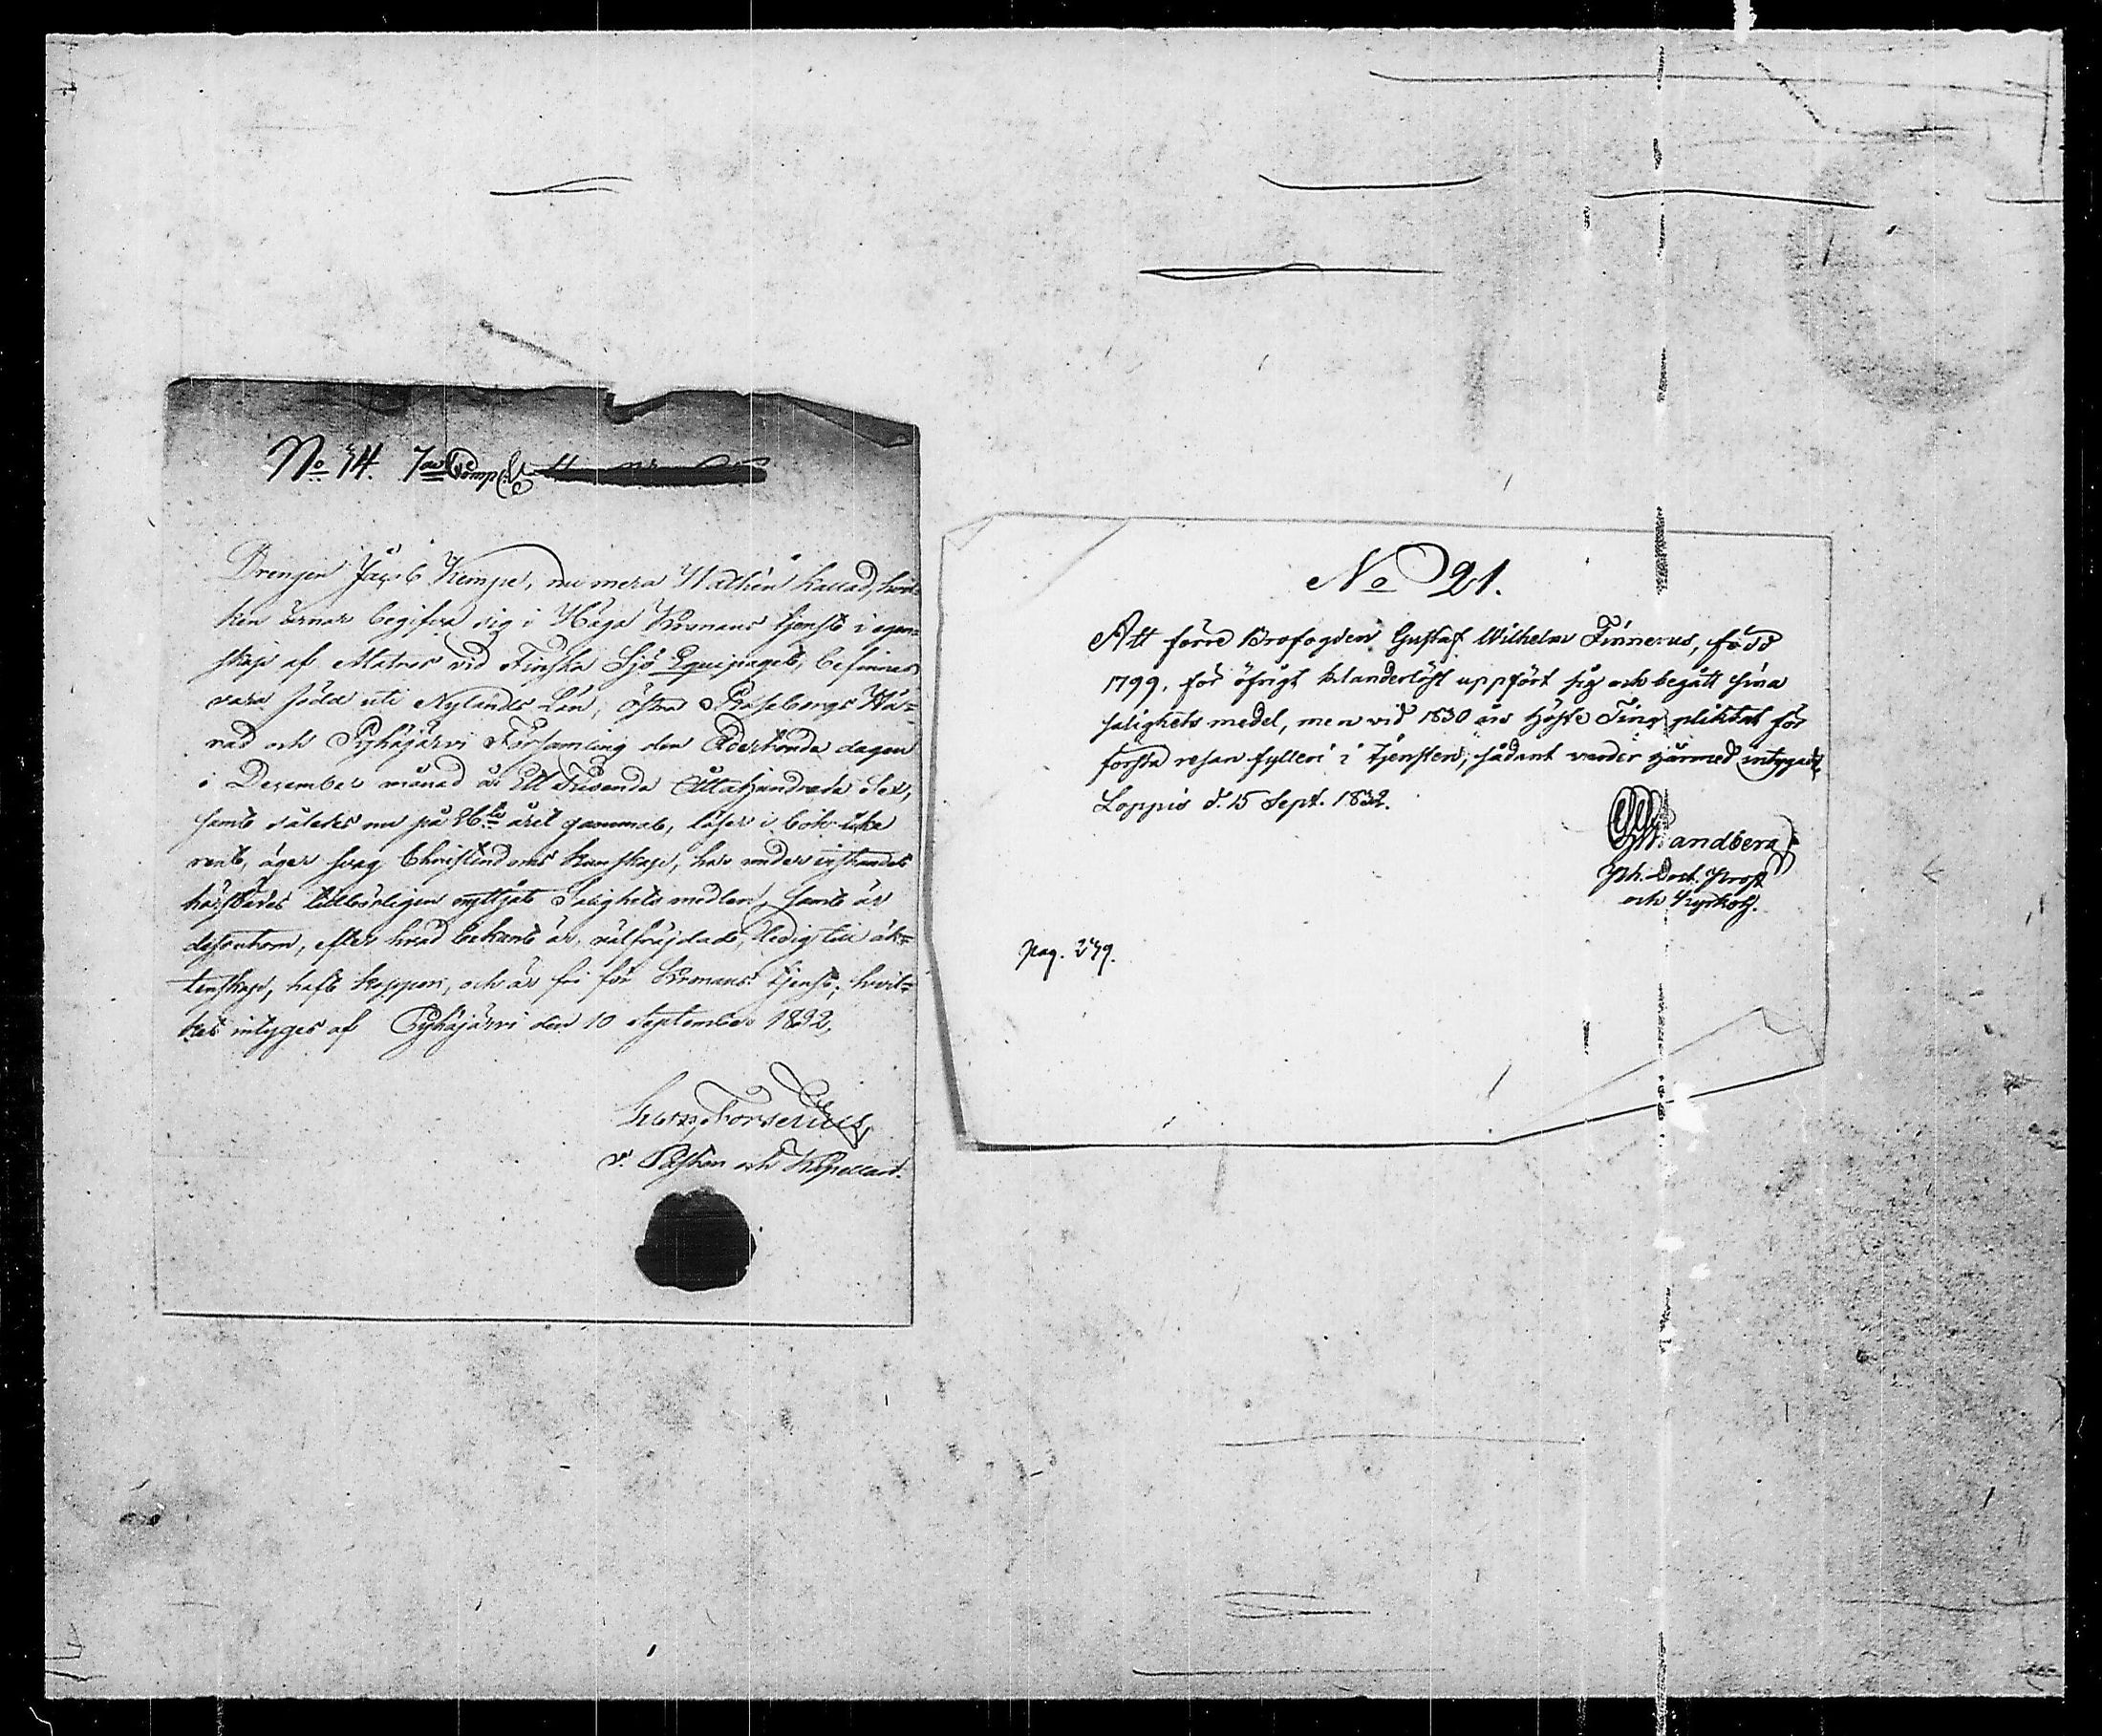 No 74. 7de Comp.
Drengen Jacob Kempe, nu mera Wathén kallad, hvil-
ken ärnar begifva sig i Höga Kronans tjenst i egen=
skap af Matros vid Finska Sjö Equipaget, befinnes
vara född uti Nylands Län, östra Raseborgs Hä=
rad och Pyhäjärvi Församling den Adertonde dagen
i December månad år Ett Tusende Åttahundrade Sex,
samt således nu på 26te året gammal, läser i bok icke
rent, äger svag Christendoms kunskap, har under vistandet
härstädes tillbörligen nyttjat Salighets medlen, samt är
dessutom, efter hvad bekant är, välfräjdad, ledig till äk=
tenskap, haft koppor, och är fri för Kronans tjenst; hvil=
ket intyges af Pyhäjärvi den 10 September 1832,
Forselius,
v. Pastor och Kapellan.
No 21.
Att förre Brofogden Gustaf Wilhelm Finnerus, född
1799, för öfrigt klanderlöst uppfört sig och begått sina
salighets medel, men vid 1830 års Höste Ting pliktat för
första resan fylleri i tjensten; sådant varder härmed intygadt.
Loppis d. 15 Sept. 1832.
Sandberg
Ph. Doct. Prost
och Kyrkoh.
Pag. 279.